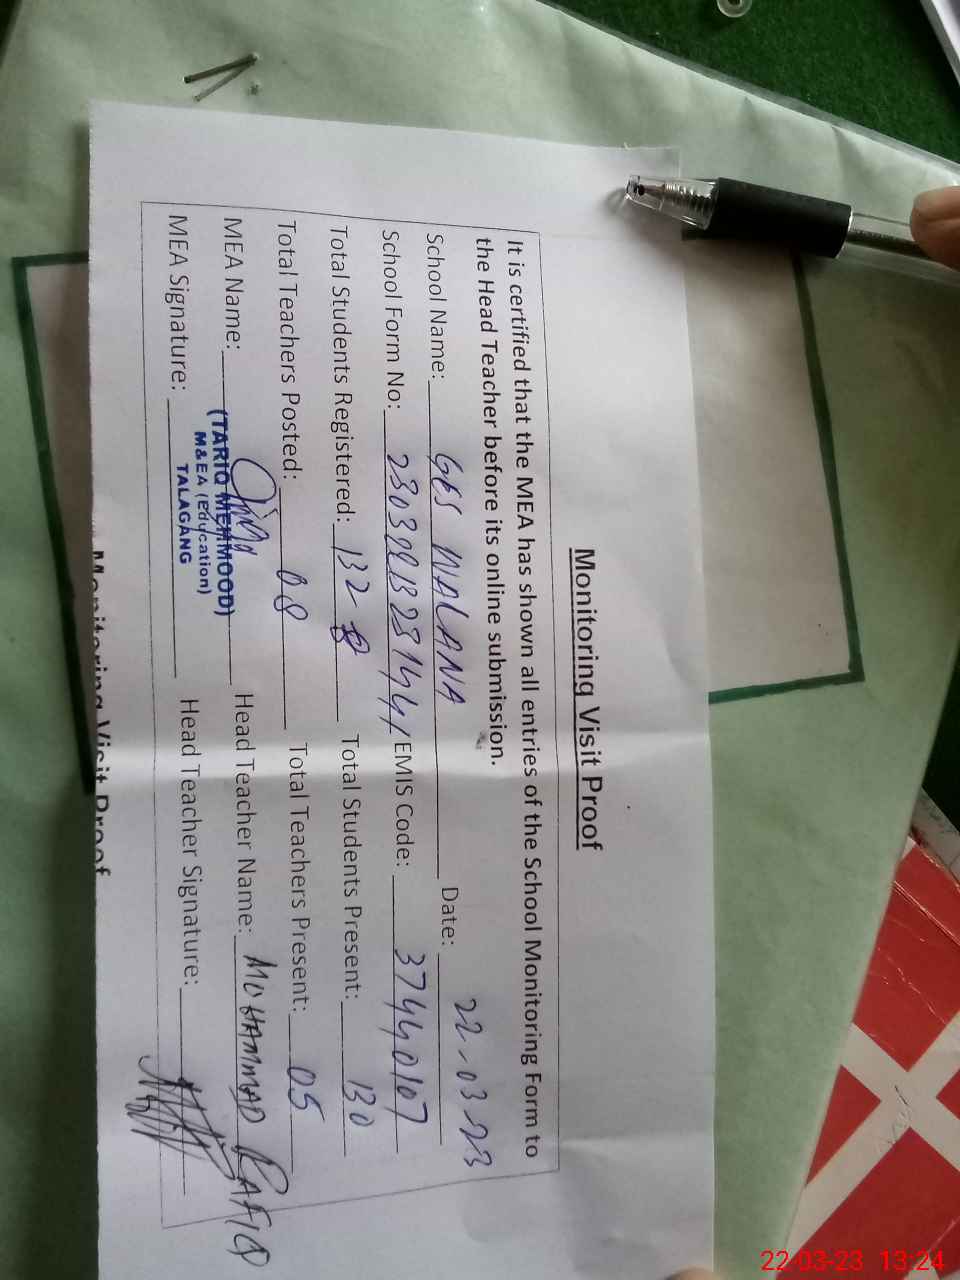 Monitoring Visit Proof
It is certified that the MEA has shown all entries of the School Monitoring Form to
the Head Teacher before its online submission.
School Name: GES WALANA Date: 22-03-23
School Form No: EMIS Code: 37440107
Total Students Registered: 132 Total Students Present: 130
Total Teachers Posted: 08 Total Teachers Present: 05
MEA Name: Head Teacher Name: MUHAMMAD RAFIQ
(TARIQ MEHMOOD)
M&EA (Education)
TALAGANG
MEA Signature: Head Teacher Signature:
Monitoring Visit Proof
22-03-23 13:24